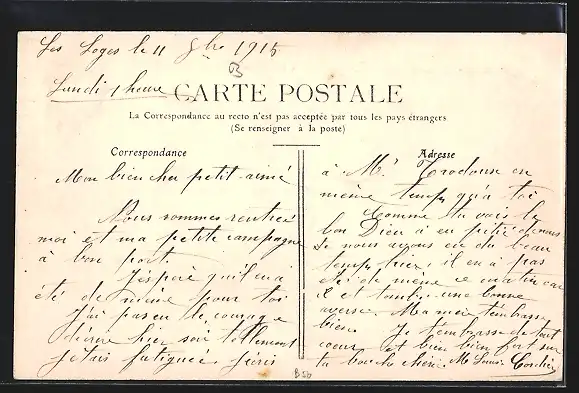 Les Loges le 11 8bre 1915
B
Lundi 1 heure
CARTE POSTALE
La Correspondance au recto n'est pas acceptée par tous les pays étrangers
(Se renseigner à la poste)
Correspondance
Mon bien cher petit aimé
Nous sommes rentrées
moi et ma petite compagne
à bon port.
J'espère qu'il en a
été de même pour toi
J'ai pas eu le courage
d'écrire hier soir tellement
j'étais fatiguée j'écris
Adresse
à Mr en
même temps qu'à toi
Comme tu vois le
bon Dieu a eu pitié de nous
Si nous avons eu du beau
temps hier, il en a pas
été de même ce matin car
il est tombé une bonne
averse. Ma mère t'embrasse
bien Je t'embrasse de tout
coeur et bien bien fort sur
ta bouche chérie. Me Louis Cordier
B50